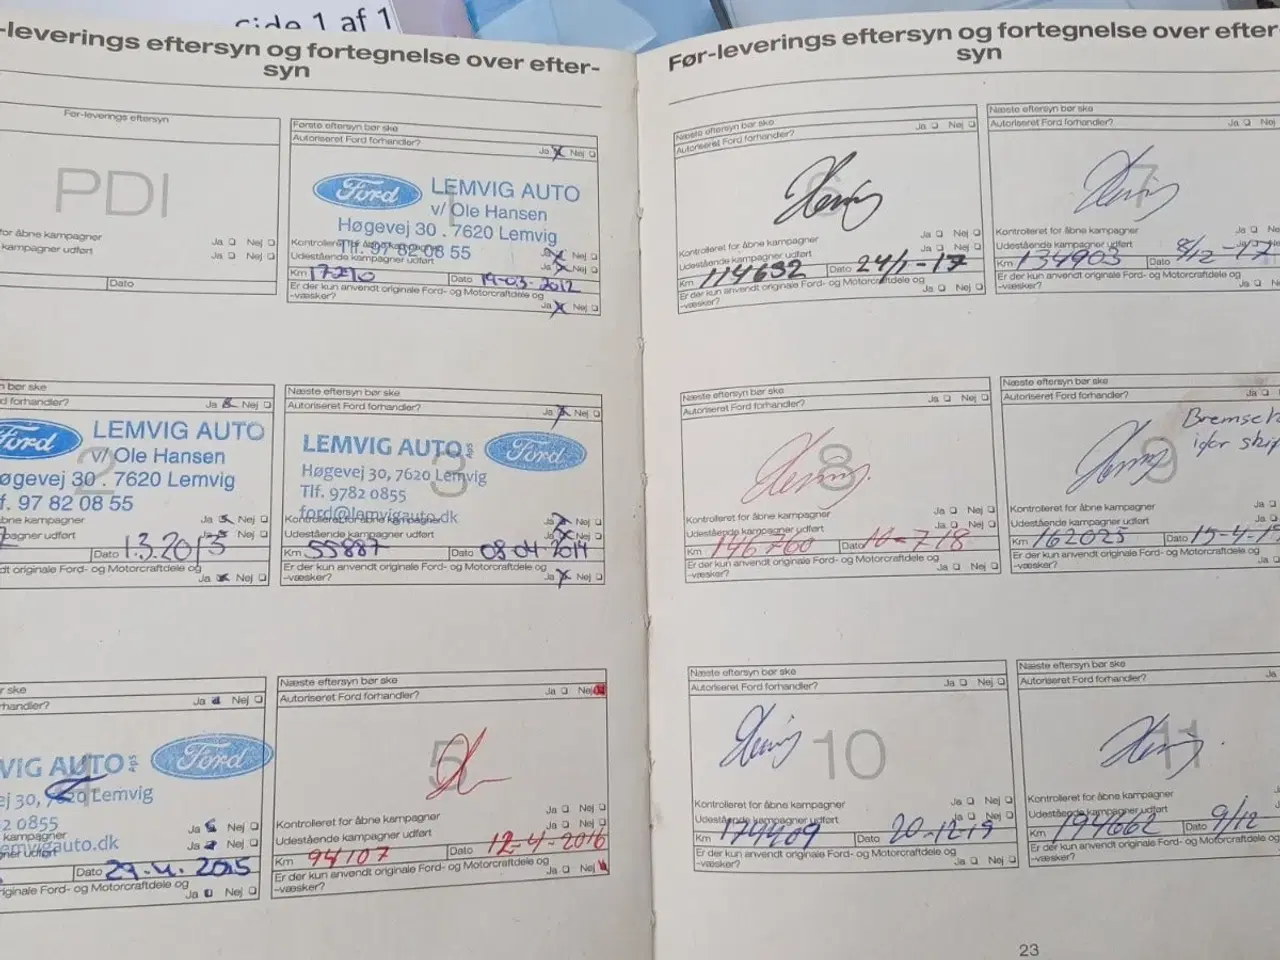 side 1 af 1
-leverings eftersyn og fortegnelse over efter-
syn
Før-leverings eftersyn
PDI
for åbne kampagner Ja Nej
kampagner udført Ja Nej
Dato
Første eftersyn bør ske
Autoriseret Ford forhandler?
Ja Nej
1
Ford LEMVIG AUTO
v/ Ole Hansen
Høgevej 30 . 7620 Lemvig
Tlf. 97 82 08 55
Kontrolleret for åbne kampagner
Udestående kampagner udført
Ja Nej
Ja Nej
Km 17210 Dato 19-03-2012
Er der kun anvendt originale Ford- og Motorcraftdele og
-væsker?
Ja Nej
n bør ske
d forhandler? Ja Nej
2
Ford LEMVIG AUTO
v/ Ole Hansen
øgevej 30 . 7620 Lemvig
f. 97 82 08 55
bne kampagner Ja Nej
pagner udført Ja Nej
Dato 1.3.2013
dt originale Ford- og Motorcraftdele og
Ja Nej
Næste eftersyn bør ske
Autoriseret Ford forhandler?
Ja Nej
3
LEMVIG AUTO ApS Ford
Høgevej 30, 7620 Lemvig
Tlf. 9782 0855
ford@lemvigauto.dk
Kontrolleret for åbne kampagner Ja Nej
Udestående kampagner udført Ja Nej
Km 55887 Dato 08-04-2014
Er der kun anvendt originale Ford- og Motorcraftdele og
-væsker?
Ja Nej
r ske
rhandler? Ja Nej
4
VIG AUTO ApS Ford
ej 30, 7620 Lemvig
82 0855
emvigauto.dk
kampagner Ja Nej
ner udført Ja Nej
Dato 29-4-2015
riginale Ford- og Motorcraftdele og
Ja Nej
Næste eftersyn bør ske
Autoriseret Ford forhandler? Ja Nej
5
Kontrolleret for åbne kampagner Ja Nej
Udestående kampagner udført Ja Nej
Km 94107 Dato 12-4-2016
Er der kun anvendt originale Ford- og Motorcraftdele og
-væsker?
Ja Nej
Før-leverings eftersyn og fortegnelse over efter-
syn
Næste eftersyn bør ske
Autoriseret Ford forhandler? Ja Nej
6
Kontrolleret for åbne kampagner Ja Nej
Udestående kampagner udført Ja Nej
Km 114632 Dato 24/1-17
Er der kun anvendt originale Ford- og Motorcraftdele og
-væsker?
Ja Nej
Næste eftersyn bør ske
Autoriseret Ford forhandler? Ja Nej
7
Kontrolleret for åbne kampagner Ja Ne
Udestående kampagner udført
Km 134903 Dato 8/12-17
Er der kun anvendt originale Ford- og Motorcraftdele og
-væsker?
Ja Ne
Næste eftersyn bør ske
Autoriseret Ford forhandler? Ja Nej
8
Kontrolleret for åbne kampagner Ja Nej
Udestående kampagner udført Ja Nej
Km 146760 Dato
Er der kun anvendt originale Ford- og Motorcraftdele og
-væsker?
Ja Nej
Næste eftersyn bør ske
Autoriseret Ford forhandler? Ja
9
Kontrolleret for åbne kampagner Ja
Udestående kampagner udført Ja
Km 162025 Dato 15-4-1
Er der kun anvendt originale Ford- og Motorcraftdele og
-væsker?
Ja
Næste eftersyn bør ske
Autoriseret Ford forhandler? Ja Nej
10
Kontrolleret for åbne kampagner Ja Nej
Udestående kampagner udført Ja Nej
Km 174409 Dato 20-12-19
Er der kun anvendt originale Ford- og Motorcraftdele og
-væsker?
Ja Nej
Næste eftersyn bør ske
Autoriseret Ford forhandler? Ja
11
Kontrolleret for åbne kampagner
Udestående kampagner udført Ja
Km 194662 Dato 9/12
Er der kun anvendt originale Ford- og Motorcraftdele og
-væsker?
Ja
23